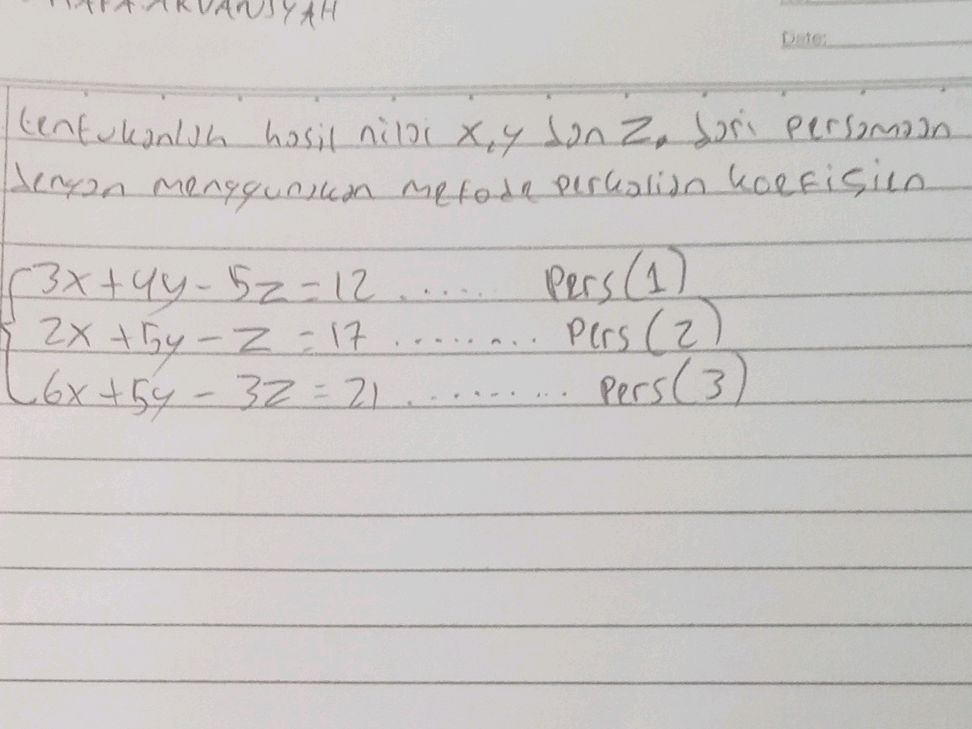 Date:
tentukanlah hasil nilai x,y dan z. dari persamaan
dengan menggunakan metode perkalian koefisien
3x + 4y - 5z = 12 ...... Pers (1)
2x + 5y - z = 17 ......... Pers (2)
6x + 5y - 3z = 21 .......... Pers (3)